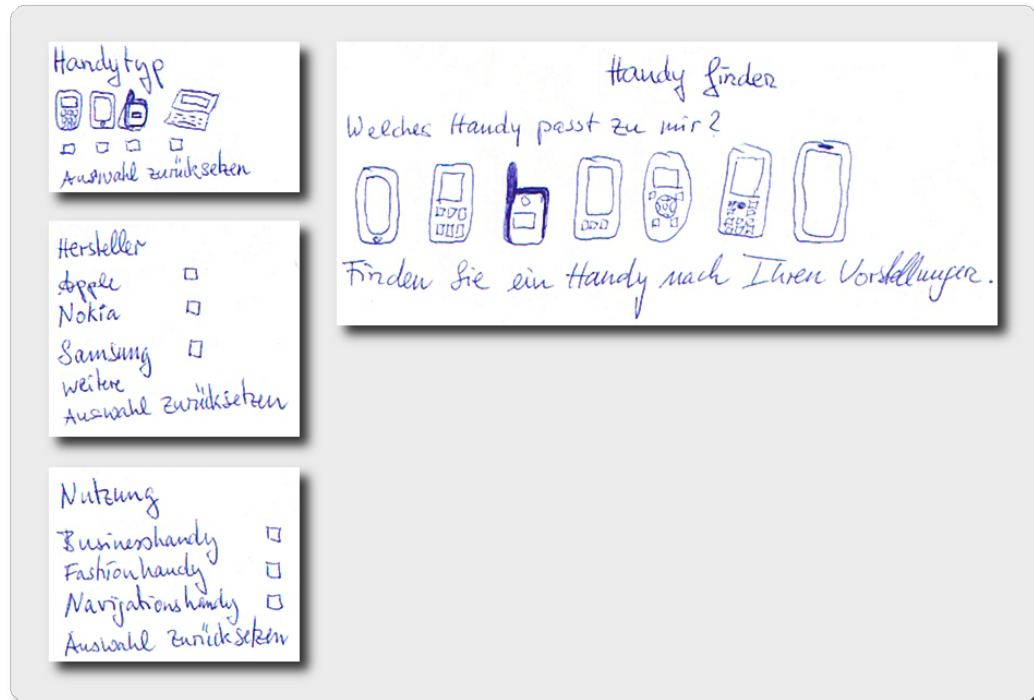 Handytyp
Auswahl zurücksetzen
Hersteller
Apple
Nokia
Samsung
weitere
Auswahl zurücksetzen
Nutzung
Businesshandy
Fashionhandy
Navigationshandy
Auswahl zurücksetzen
Handy finder
Welches Handy passt zu mir?
Finden Sie ein Handy nach Ihren Vorstellungen.